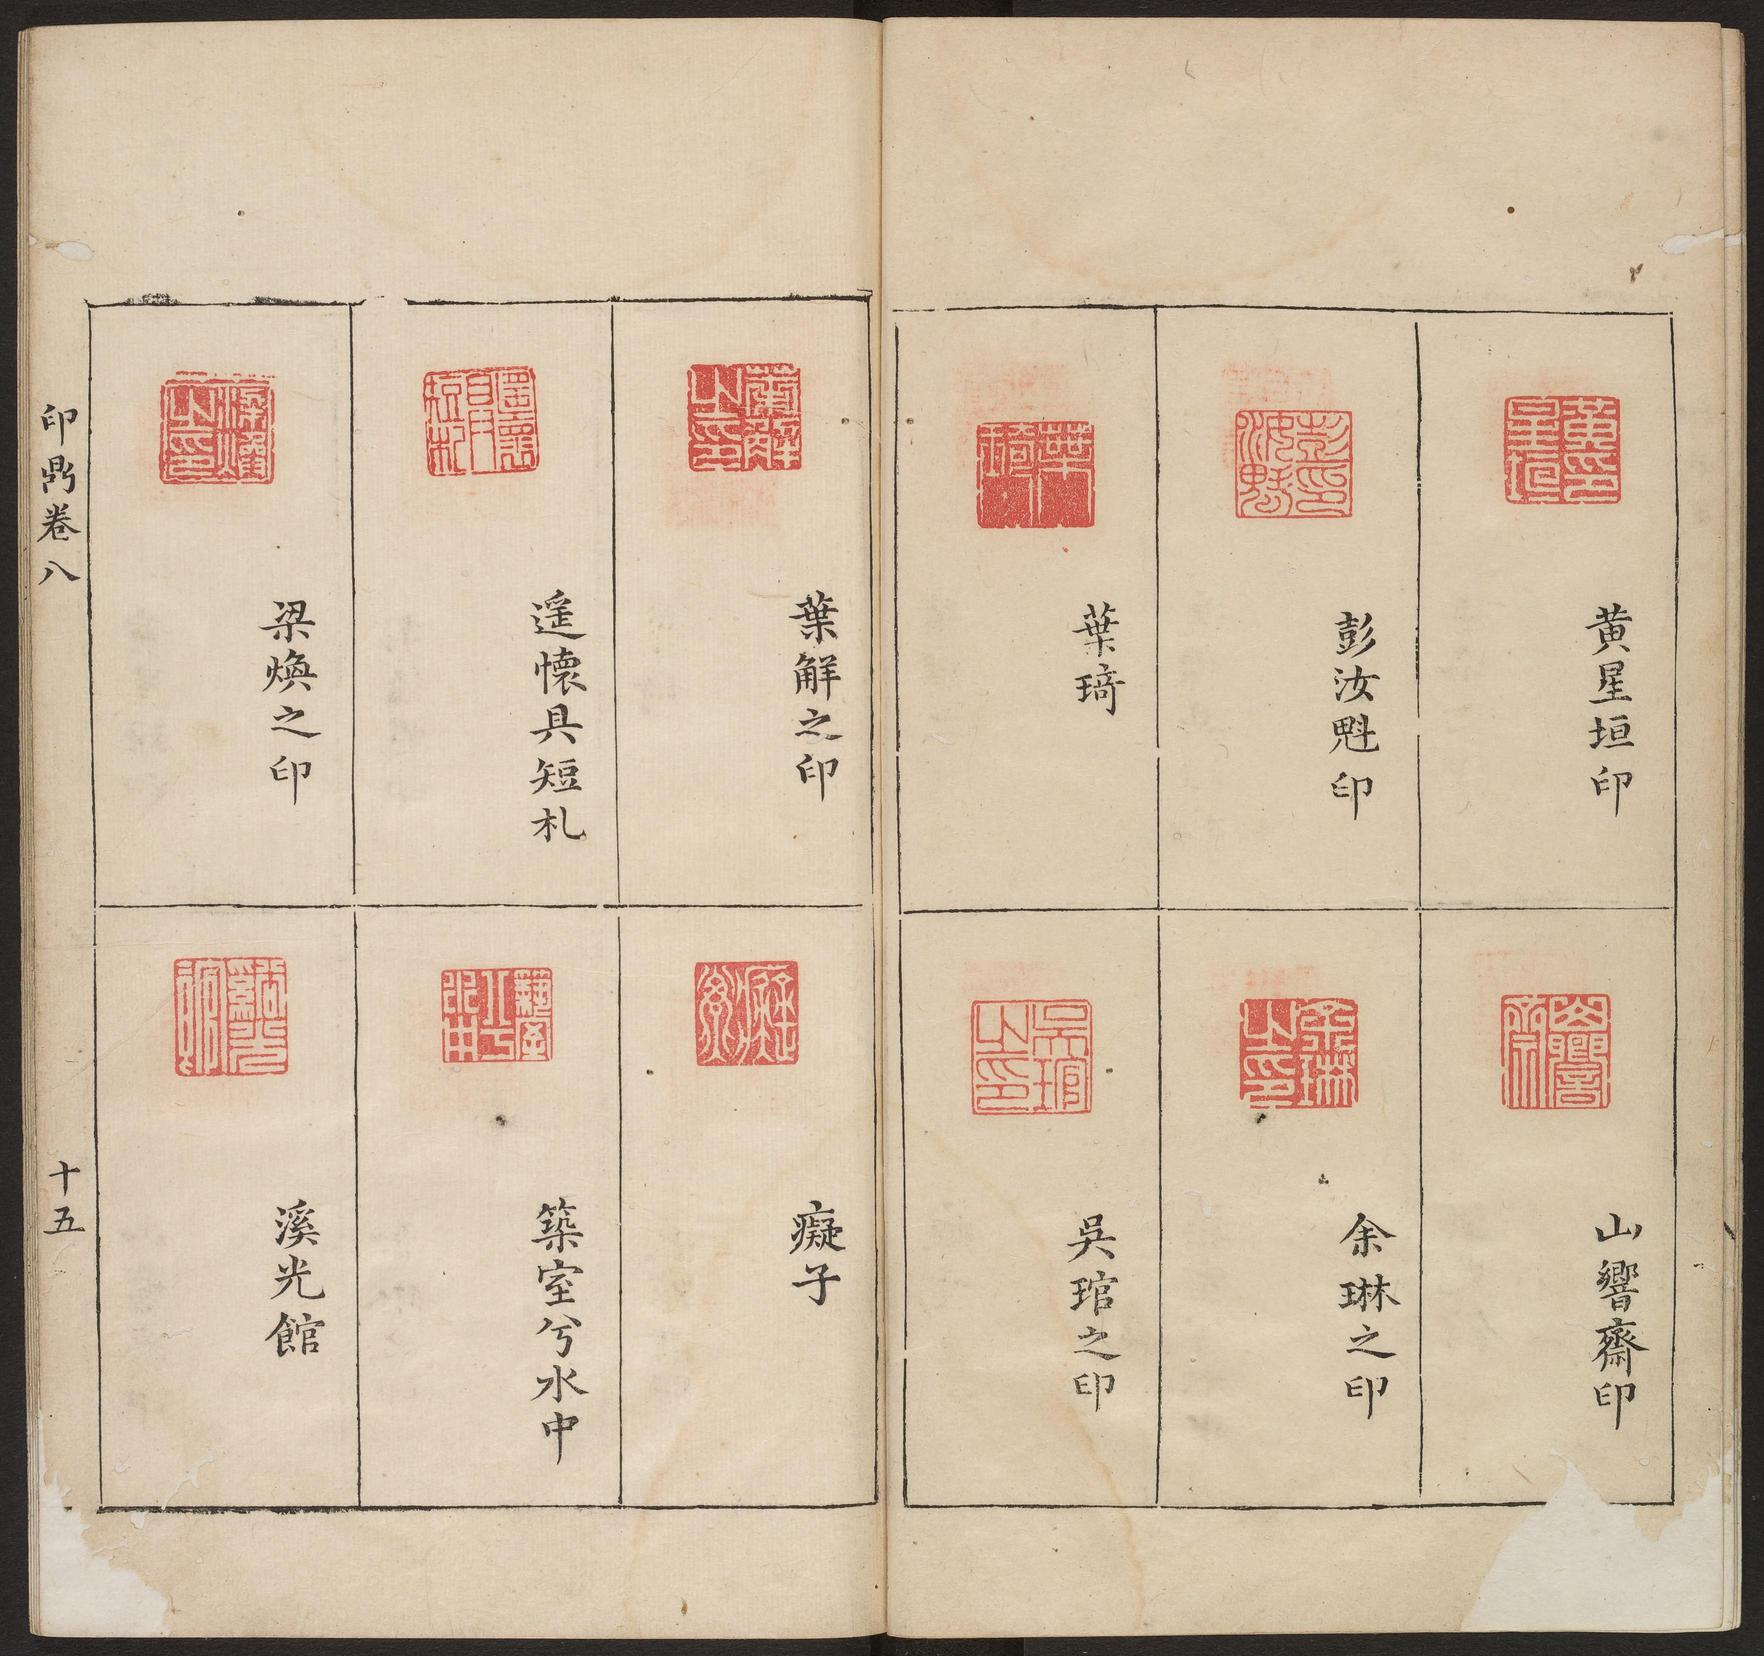 黄星垣印
彭汝魁印
葉琦
山響齋印
余琳之印
吳琯之印
葉解之印
遥懷具短札
梁煥之印
癡子
築室兮水中
溪光館
印鼎卷八
十五